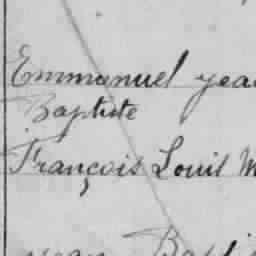 Emmanuel yea
Baptiste
François Louis M
yean Bapti